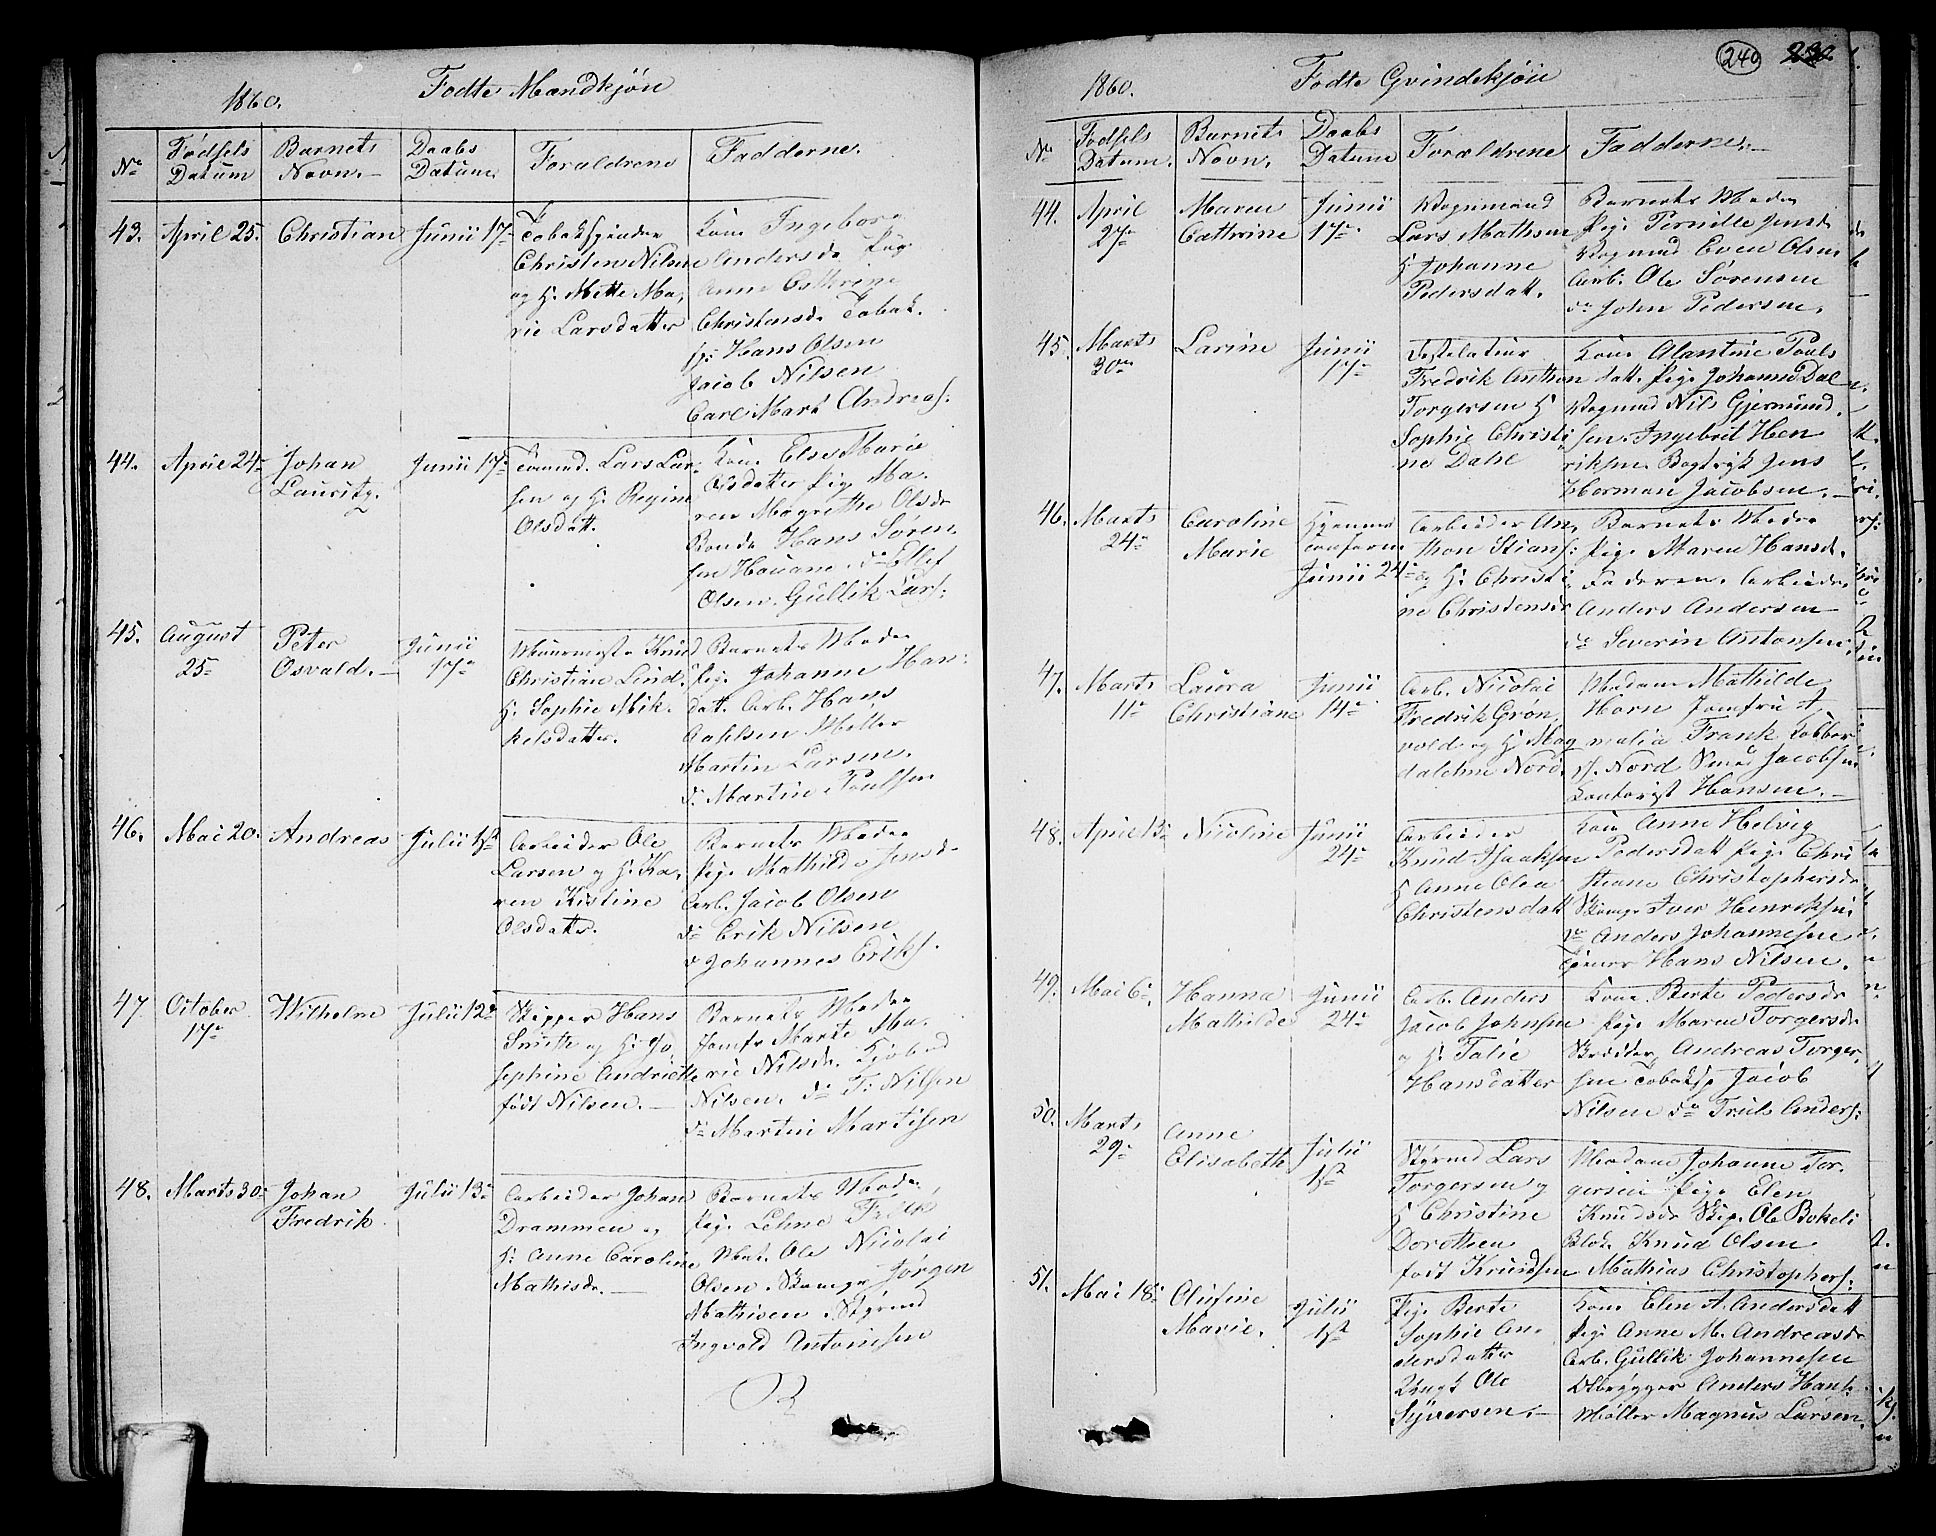 1860.
Fødte Mandkjøn
No
Fødsels Datum
Barnets Navn.
Daabs Datum.
Forældrene
Fadderne.
43. April 25. Christian Junii 17
Tobakspinder
Christen Nilsen
og H. Mette Ma,
rie Larsdatter
Kone Ingeborg
Andersdr Pige
Anne Cathrine
Christensdr Tobak.
sp: Hans Olsen
Jacob Nilsen
Carl Mart Andreas:
44. April 24 Johan Lauritz. Junii 17
Lars Lar,
sen og H. Regine
Olsdatt.
Kone Else Marie
Pige Ma,
ren Magrethe Olsdr
Bonde Hans Søren,
sen do Ellef
Olsen. Gullik Lars:
45. August 25 Peter Osvald. Junii 17
Muurmestr Knud
Christian Lind,
H. Sophie Mik,
kelsdatter.
Barnets Moder
Pige Johanne Han:
datt. Arb. Hans
Møller
Martin Larsen.
do Martin Poulsen
46. Mai 20. Andreas Julii 1st
Arbeider Ole
Larsen og H. Ka,
ren Kistine
Olsdatter.
Barnets Moder
Pige Mathilde Jensdr
Arb. Jacob Olsen
do Erik Nilsen
do Johannes Eriks.
47 October 17 Wilhelm Julii 12
Skipper Hans
Smith og H. Jo
sephine Andriette
født Nilsen.
Barnets Moder
Jomfr Marte Ma,
rie Nilsdr. Kjøbmd
Nilsen. do T. Nilsen
do Martin Martisen
48. Marts 30 Johan Fredrik. Julii 13
Arbeider Johan
Drammen og
H. Anne Caroline
Mathisdr.
Barnets Moder,
Pige Lehne
Mat. Ole Nicolai
Olsen. Skomgr Jørgen
Mathisen. Styrmd
Ingvold Antonisen
240
1860.
Fødte Qvindekjøn
No
Fødsels Datum.
Barnets Navn.
Daabs Datum
Forældrene
Fadderne.
44. April 27 Maren Cathrine Junii 17
Vognmand
Lars Mathsen
H. Johanne
Pedersdatt.
Barnets Moder
Pige Pernille Jensdr
Vogmd Even Olsen
Arb. Ole Sørensen
do John Pedersen.
45. Marts 30 Larine Junii 17
Destelatør
Fredrik Anthon
Torgersen H.
Sophie Christi
ne Dahl
Kone Alantine Pouls
datt. Pige Johanne Dal
Vogmd Nils Gjermund.
sen. Ingebret Hen
riksen. Bogtryk Jens
Herman Jacobsen.
46. Marts 24 Caroline Marie Hjemme Junii 24
Arbeider An,
thon Stians:
og H. Christi
ne Christensdr
Barnets Moder
Pige Maren Hansdr.
Faderen. Arbeider
Anders Andersen
do Severin Antonsen.
47. Marts 11 Laura Christiane Junii 14
Arb. Nicolai
Fredrik Grøn,
vold og H. Mag
dalehne Nord.
Madame Mathilde
Horn Jomfru A
malia Frank Kobber
sl. Nord Smed Jacobsen
Contorist Hansen.
48. April 13 Nicoline Junii 24
Arbeider
Knud Isaaksen
H. Anne Olea
Christensdatt
Kone Anne Helvig
Pedersdatt Pige Chri
stiane Christophersdr
Skomgr Iver Henriksen
do Anders Johannesen
Hans Nilsen.
49. Mai 6. Hanna Mathilde Junii 24
Arb. Anders
Jacob Johnsen
og H. Talie
Hansdatter
Kone Berte Pedersdr
Pige Maren Torgersdr
Skræder Andreas Torger,
sen Tobaksp Jacob
Nilsen do Truls Anders:
50. Marts 29 Anne Elisabeth Julii 1st
Styrmd Lars
Torgersen og
H. Christine
Dorethea
født Knudsen
Madame Johanne Tor,
gersen Pige Elen
Knudsdr Skip. Ole Bokeli
Knud Olsen
Mathias Christophers:
51. Mai 18 Olufine Marie. Julii 1st
Pige Berte
Sophie An,
dersdatter
Ungk Ole
Syversen.
Kone Elen A. Andersdatt
Pige Anne M. Andreasdr
Arb. Gullik Johannesen
Ølbrygger Anders Hans.
Møller Magnus Larsen.